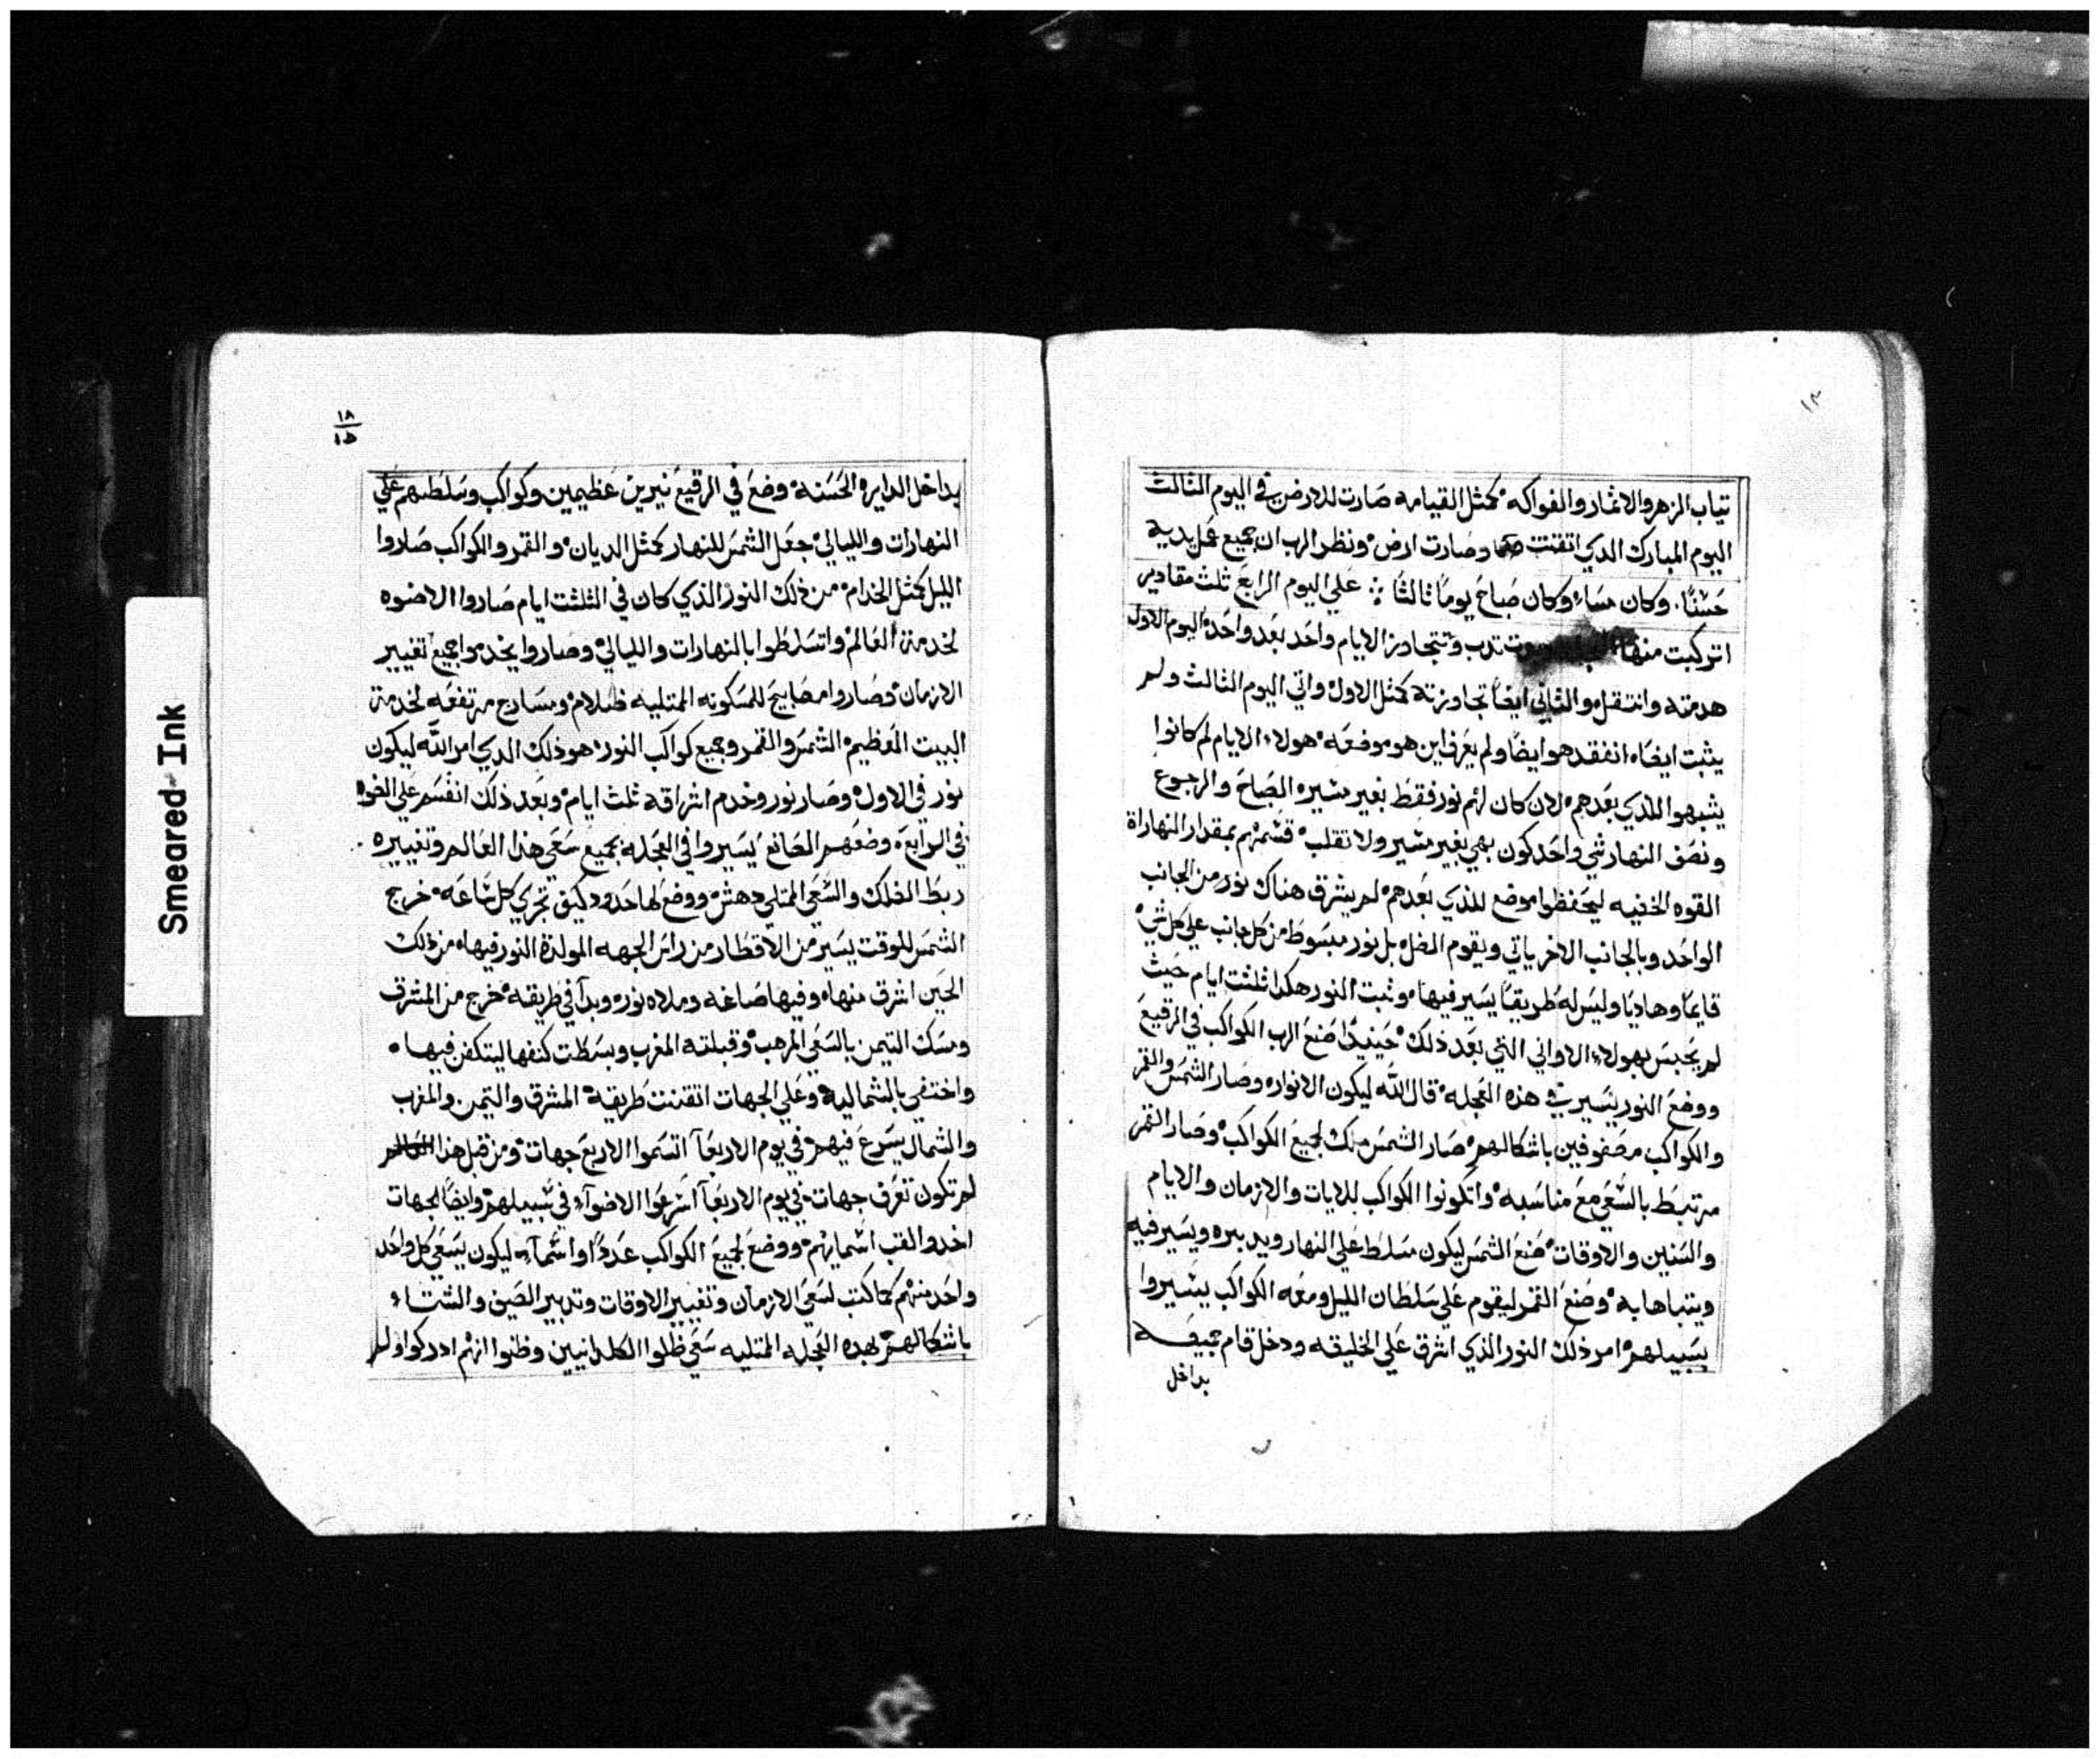 تياب الزهر والاثمار والفواكه كمثل القيامه صارت للارض في اليوم الثالث
اليوم المبارك الدي اتقنت وصارت ارض ونظر الرب ان جميع عمل يديه
حسنًا وكان مساء وكان صباح يومًا ثالثًا علي اليوم الرابع ثلث مقادير
اتركبت منها تدب وتتجاوز الايام واحد بعد واحده اليوم الاول
هدمته وانتقل والثاني ايضًا تجاوزته كمثل الاول واتي اليوم الثالث ولم
يثبت ايضًا انفقد هو ايضًا ولم يعرف اين هو موضعه هولاء الايام لم كانوا
يشبهوا للذي بعدهم لان كان لهم نور فقط بغير مشيره الصباح والرجوع
ونصف النهار شي واحد كون بهي بغير مشير ولا تقلب قسمتهم بمقدار النهاراة
القوه الخفيه ليحفظوا موضع للذي بعدهم لم يشرق هناك نور من الجانب
الواحد وبالجانب الاخر ياتي ويقوم الضل بل نور مبسوط من كل جانب علي كل شي
قايمًا وهاديًا وليس له طريقًا يسير فيها وثبت النور هكدا ثلثت ايام حيث
لم يحبس بهولاء الاواني التي بعد ذلك حينيدًا صنع الرب الكواكب في الرقيع
ووضع النور يسير في هذه العجله قال الله ليكون الانوار وصار الشمس والقمر
والكواكب مصفوفين باشكالهم صار الشمس ملك لجميع الكواكب وصار القمر
مرتبط بالسعي مع مناسبه واتكونوا الكواكب للايات والازمان والايام
والسنين والاوقات صنع الشمس ليكون مسلط علي النهار ويدبره ويسير فيه
ويتباها به وضع القمر ليقوم علي سلطان الليل ومعه الكواكب يسيروا
بسبيلهم امر ذلك النور الذي اشرق علي الخليقه ودخل قام جميعه
بداخل
١٨
١٥
بداخل الدايره الحسنه وضع في الرقيع نيرين عظيمين وكواكب وسلطهم علي
النهارات والليالي جعل الشمس للنهار كمثل الديان والقمر والكواكب صاروا
الليل كمثل الخدام من ذلك النور الذي كان في الثلثت ايام صاروا الاضوه
لخدمة العالم واتسلطوا بالنهارات والليالي وصاروا يخدموا جميع تغيير
الازمان وصاروا مصابيح للمسكونه المتليه ظلام ومسارج مرتفعه لخدمة
البيت العظيم الشمس والقمر وجميع كواكب النور هو ذلك الدي امر الله ليكون
نور في الاول وصار نور وخدم اشراقه ثلث ايام وبعد ذلك انقسم علي الضوه
في الرابع وضعهم الصانع يسيروا في العجله بجميع سعي هذا العالم وتغييره
ربط الفلك والسعي المتلي دهش ووضع لها حدود كيف تجري كل ساعه خرج
الشمس للوقت يسير من الاقطار من راس الجهه المولدة النور فيها من ذلك
الحين اشرق منها وفيها صاغه وملاه نور وبدا في طريقه خرج من المشرق
ومسك التيمن بالسعي المرهب وقبلته المغرب وبسطت كنفها ليتكفن فيها
واختفي بالشماليه وعلي الجهات اتقنت طريقة المشرق والتيمن والمغرب
والشمال يسرع فيهم في يوم الاربعا اتسموا الاربع جهات ومن قبل هذا العالم
لم تكون تعرف جهات في يوم الاربعا اسرعوا الاضوآء في سبيلهم وايضًا الجهات
اخدوا لقب اسمايهم ووضع لجميع الكواكب عددًا واسمآء ليكون يسعي كل واحد
واحد منهم كما كتب لسعي الازمان وتغيير الاوقات وتدبير الصيف والشتاء
باشكالهم بهده العجله المتليه سعي ظلوا الكلدانيين وظنوا انهم ادركوا ولم
Smeared Ink